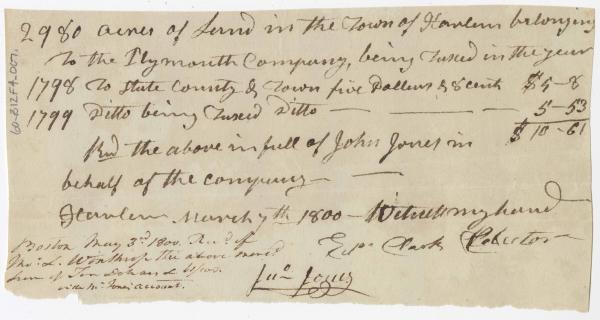 2980 acres of Land in the Town of Harlem belonging
to the Plymouth Company, being Taxed in the year
1798 To State County & Town five Dollars & 8 cents $5-8
1799 Ditto being Taxed Ditto — — — 5-53
$10-61
Recd the above in full of John Jones in
behalf of the company —
Harlem March 7th 1800 — Witness my hand
Clark Collector
Boston May 3d 1800. Recd of
Thos. L. Winthrop the above mened
sum of Ten Dollars &
with Mr. Jones account.
Jno Jones
60-B12F4-007.